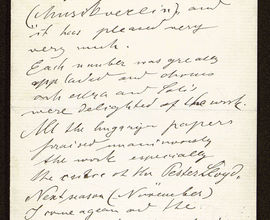 (Musikverein), and
it has pleased very
very much.
Each number was greatly
applauded and chorus
orchestra and Soli's
were delighted of the work.
All the hungarian papers
praised unanimously
the work especially
the critic of the Pester Lloyd.
Next season (November)
I come again and the